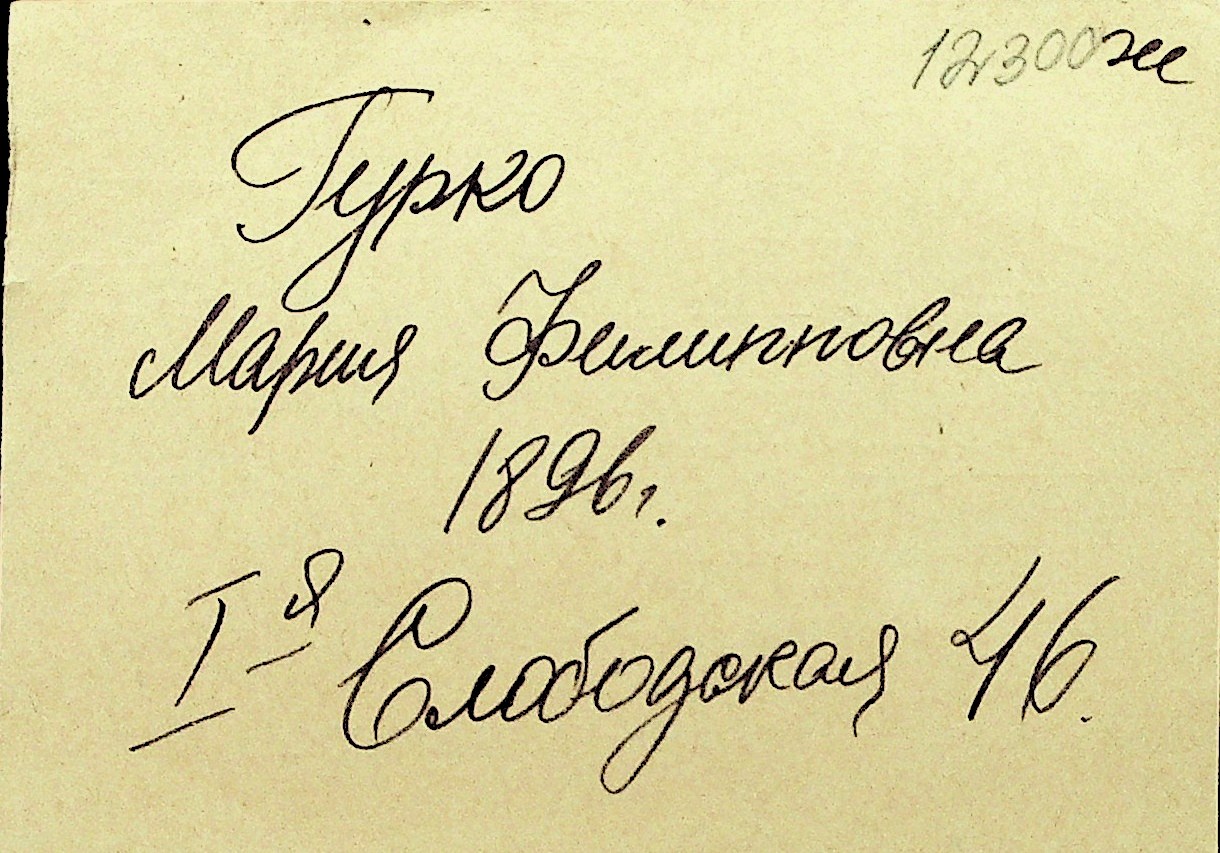 12300 ж
Гурко
Мария Филипповна
1896г.
I-я Слободская 46.